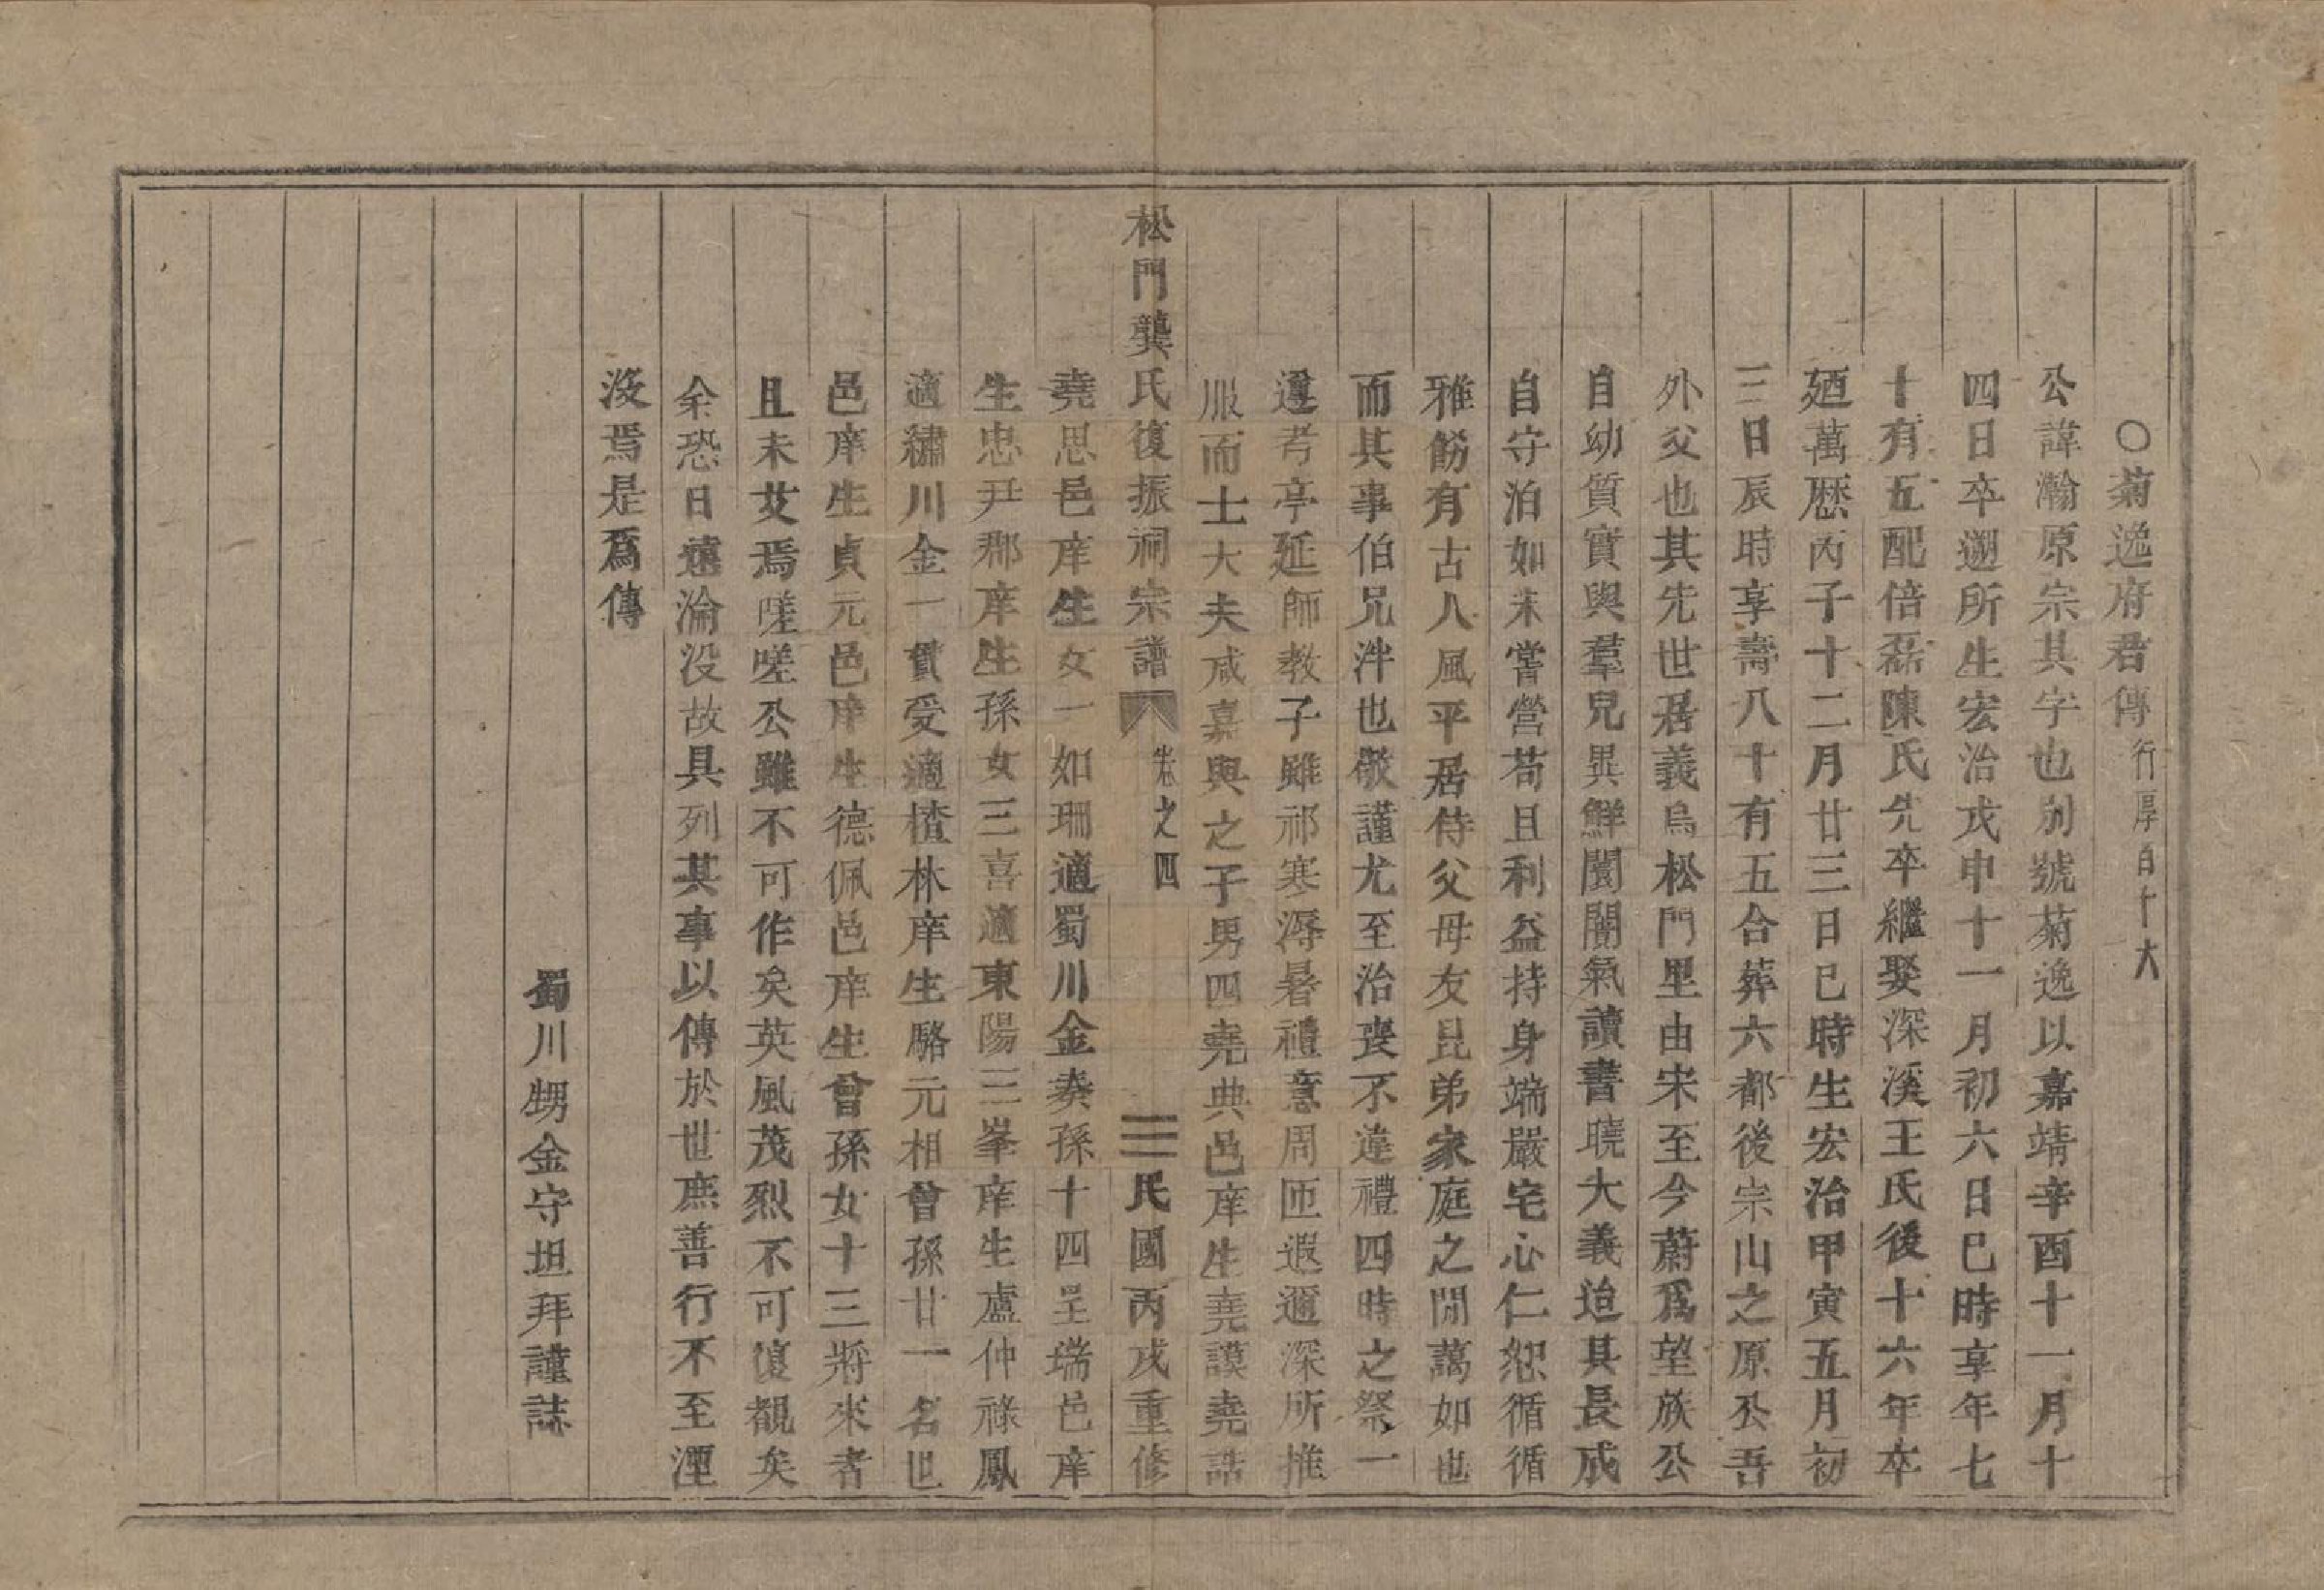 ○菊逸府君傳行厚百十大
公諱瀚原宗其字也別號菊逸以嘉靖辛酉十一月十
四日卒遡所生宏治戊申十一月初六日巳時享年七
十有五配倍磊陳氏先卒繼娶深溪王氏後十六年卒
廼萬歷丙子十二月廿三日巳時生宏治甲寅五月初
三日辰時享壽八十有五合葬六都後宗山之原公吾
外父也其先世居義烏松門里由宋至今蔚爲望族公
自幼質實與羣兒異鮮闤闠氣讀書曉大義迨其長成
自守泊如未嘗營苟且利益持身端嚴宅心仁恕循循
雅飭有古人風平居侍父母友昆弟家庭之閒藹如也
而其事伯兄泮也敬謹尤至治喪不違禮四時之祭一
遵考亭延師教子雖祁寒溽暑禮意周匝遐邇深所推
服而士大夫咸嘉與之子男四堯典邑庠生堯謨堯誥
松門龔氏復振祠宗譜 卷之四 民國丙戌重修
堯思邑庠生女一如珊適蜀川金奏孫十四呈瑞邑庠
生忠尹郡庠生孫女三喜適東陽三峯庠生盧仲祿鳳
適繡川金一貫受適楂林庠生駱元相曾孫廿一名世
邑庠生貞元邑庠生德佩邑庠生曾孫女十三將來者
且未艾焉嗟嗟公雖不可作矣英風茂烈不可復覩矣
余恐日遠淪没故具列其事以傳於世庶善行不至湮
没焉是爲傳
蜀川甥金守坦拜謹誌